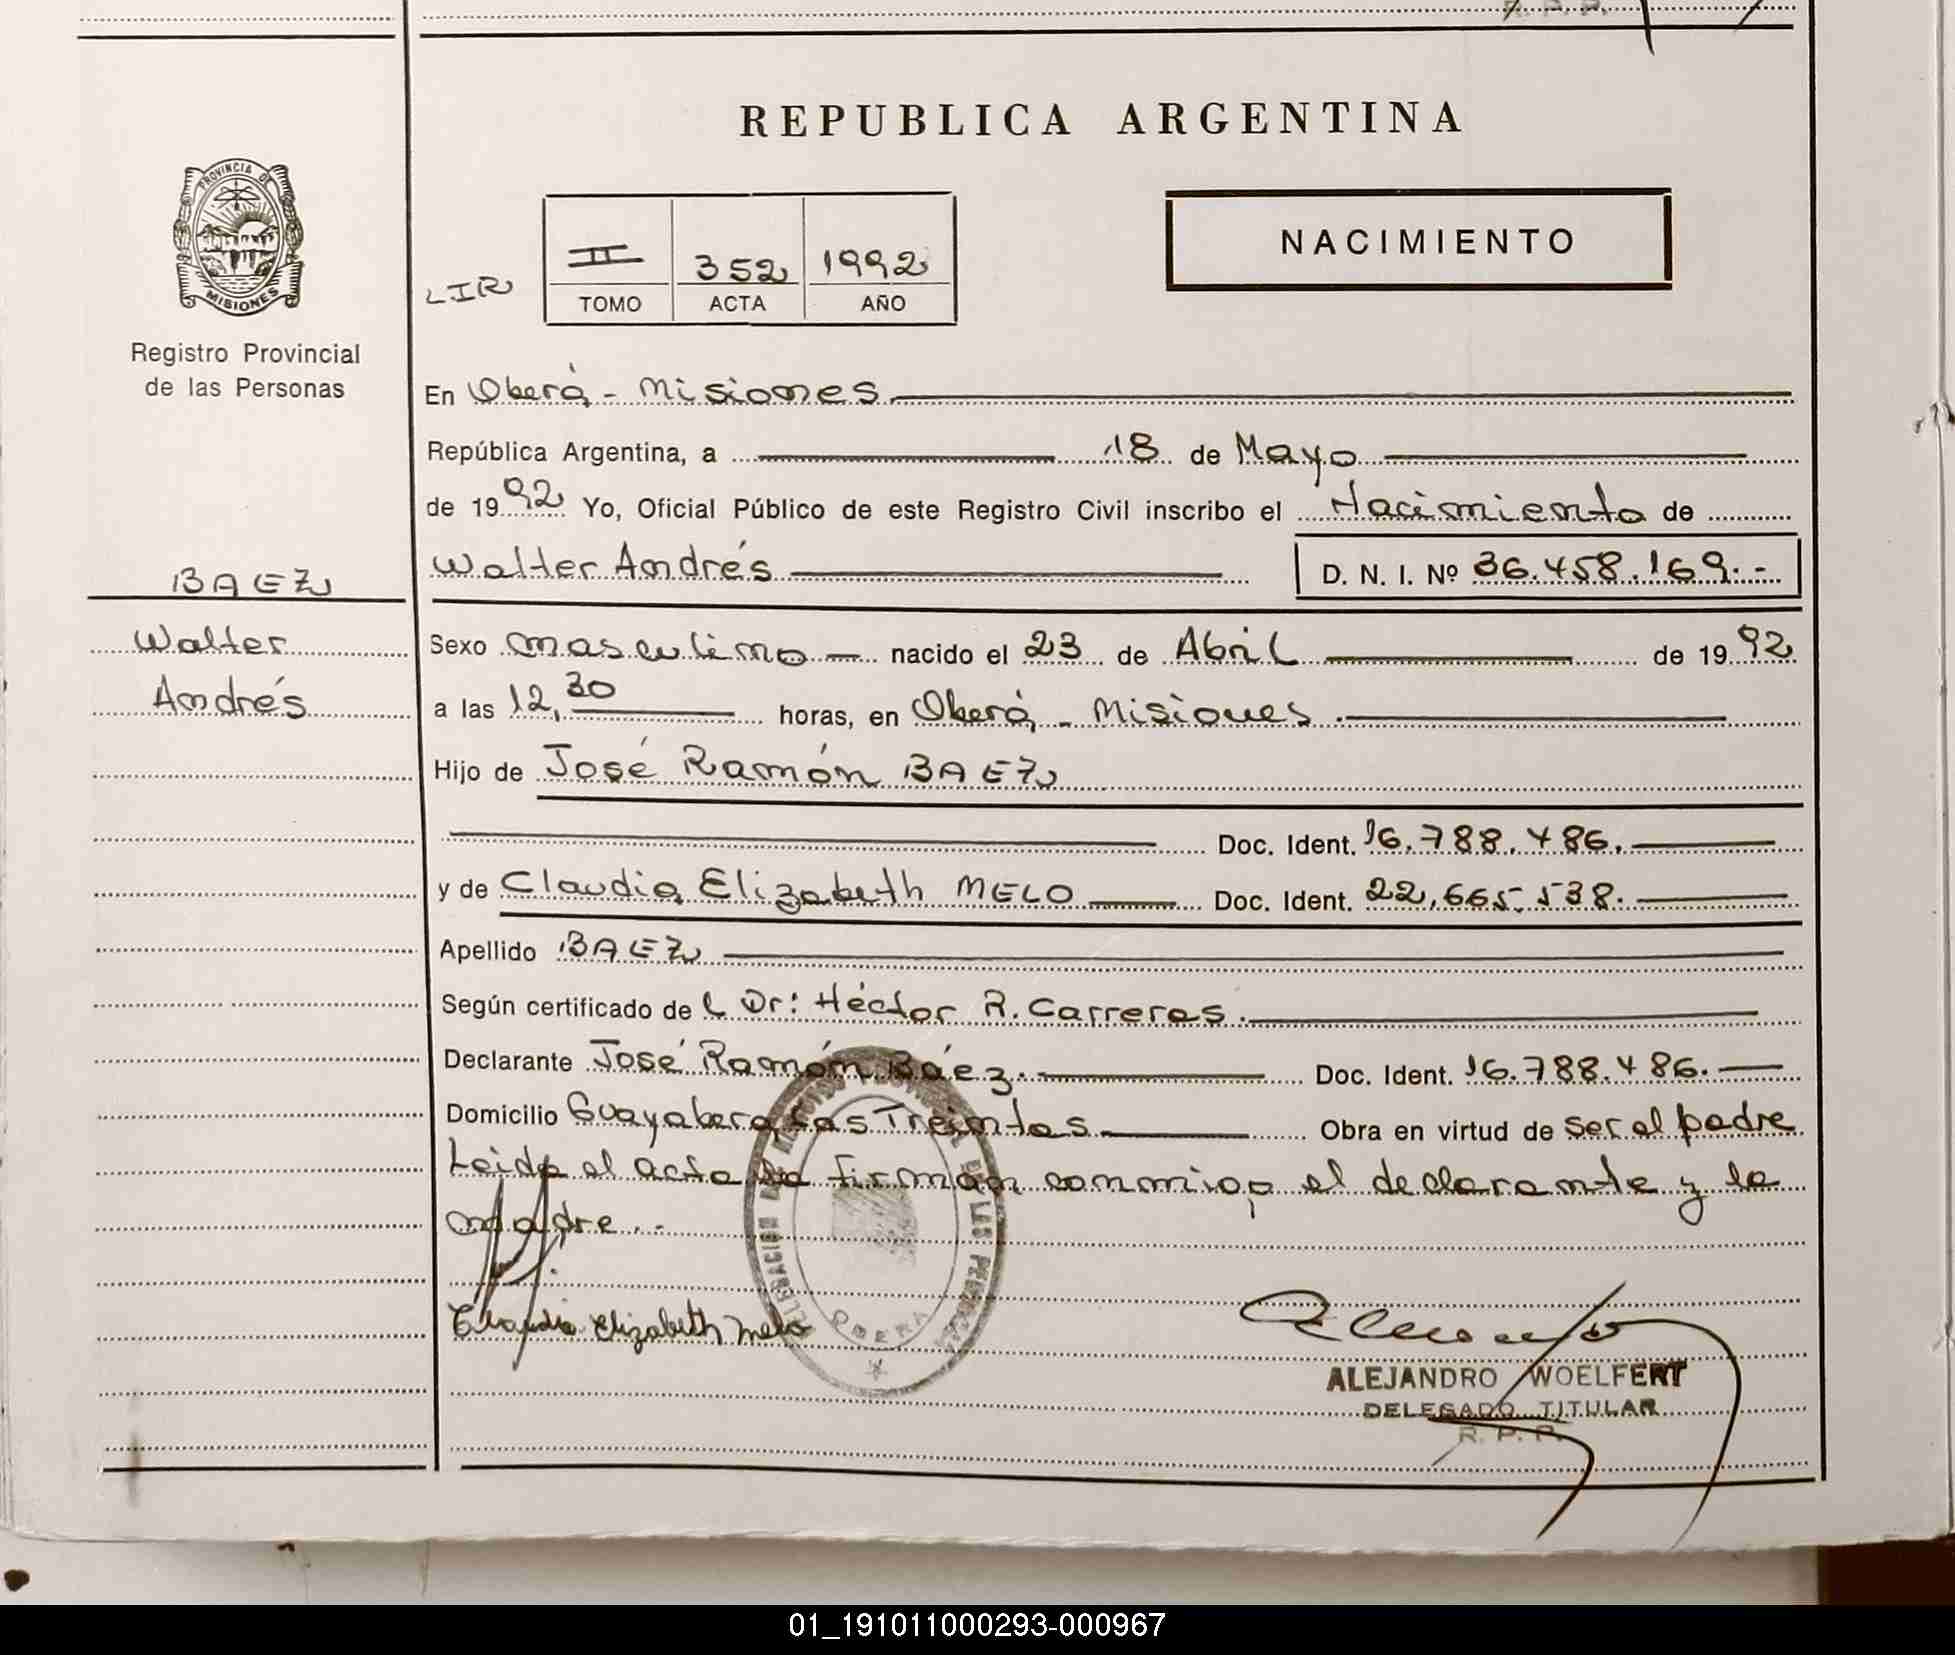 R. P. P.
REPUBLICA ARGENTINA
PROVINCIA DE
MISIONES
Registro Provincial
de las Personas
LIR
II 352 1992
TOMO ACTA AÑO
NACIMIENTO
En Oberá - Misiones
República Argentina, a 18 de Mayo
de 1992 Yo, Oficial Público de este Registro Civil inscribo el Nacimiento de
BAEZ
Walter
Andrés
Walter Andrés D. N. I. Nº 36.458.169.-
Sexo masculino nacido el 23 de Abril de 1992
a las 12,30 horas, en Oberá - Misiones.
Hijo de José Ramón BAEZ
Doc. Ident. 16.788.486.
y de Claudia Elizabeth MELO Doc. Ident. 22.665.538.
Apellido BAEZ
Según certificado del Dr: Héctor R. Carreras.
Declarante José Ramón Báez. Doc. Ident. 16.788.486.
Domicilio Guayabera, Las Treintas Obra en virtud de ser el padre
Leida el acta la firman conmigo el declarante y la
madre..
Claudia Elizabeth Melo
DELEGACION DE LAS PERSONAS
OBERA
ALEJANDRO WOELFERT
DELEGADO TITULAR
R. P. P.
01_191011000293-000967